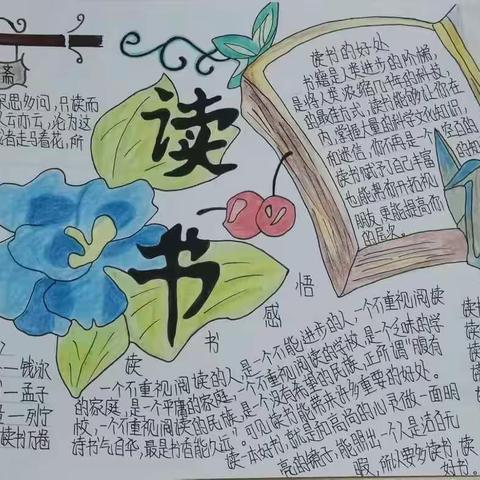 斋
思多问，只读而
云而云，沦为这
者走马看花，所
读书
读书的好处
书籍是人类进步的阶梯，
是将人类浓缩几千年的科技，
的最佳方式，读书能够让你在
内，掌握大量的科学文化知识，
而迷信，你不再是一个
读书赋予了自己丰富的
也能帮你开拓视
朋友，更能提高你
的层次。
一孟子
一列宁
读书万卷
读书感悟
一个不重视阅读的人，是一个不能进步的人，一个不重视阅读
的家庭，是一个平庸的家庭，一个不重视阅读的学校，是一个乏味的学
校，一个不重视阅读的民族，是一个没有希望的民族。正所谓"腹有
诗书气自华，最是书香能久远"。可见读书能带来许多重要的好处。
读一本好书，就是和高尚的心灵做一面明
亮的镜子，能照出一个人是洁白无
暇，所以要多读书，读
好书。